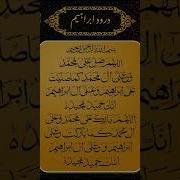 درود ابراہیم
بسم اللہ الرحمن الرحیم
اللهم صل علی محمد
وعلی آل محمد کما صلیت
علی ابراهیم وعلی آل ابراهیم
انک حمید مجید
اللهم بارک علی محمد وعلی
آل محمد کما بارکت علی
ابراهیم وعلی آل ابراهیم
انک حمید مجید